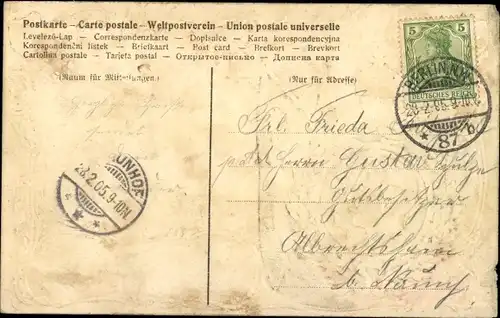 Postkarte – Carte postale – Weltpostverein – Union postale universelle
Levelező-Lap – Correspondenzkarte – Dopisnice – Karta korespondencyjna
Korespondenční lístek – Briefkaart – Post card – Brefkort – Brevkort
Cartolina postale – Tarjeta postal – Открытое письмо – Дописна карта
(Raum für Mitteilungen.)
(Nur für Adresse)
5 5
DEUTSCHES REICH
BERLIN N.W.
.2.05.9-10
* 87 b
Frl. Frieda
Herrn Gustav Schulze
Gutsbesitzer
Albrechtshain
b. Naunh
UNHOF
28.2.05.9-10N